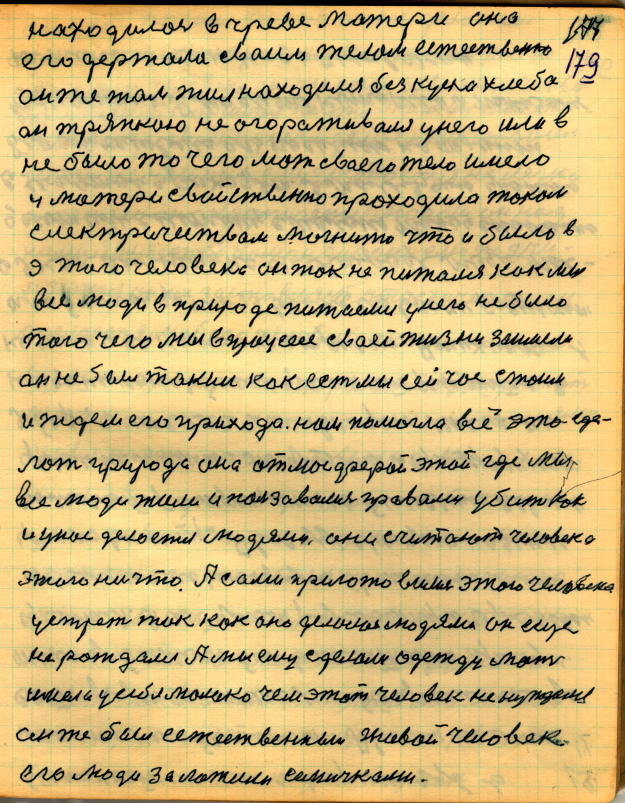 находился в чреве матери она
177
179
его держала своим телом естественно
он же там жил находился без куска хлеба
он тряпкою не огораживался у него или в
не было то чего мож своего тело имело
у матери свойственно проходила током
електричеством магнито что и было в
этого человека он ток не питался как мы
все люди в природе питаеми у него не было
того чего мы в процессе своей жизни заимели
он не был таким как есть мы сейчас стоим
и ждем его прихода. нам помогла всё это сде-
лат природа она атмосферой этой где мы
все люди жили и ползавалия правами убит как
и у нас делается людями. они считают человека
этого ничто. А сами приготовилися этого человека
устрет так как оно делалося людями он еще
не рождался А мы ему сделали одежду мат
имела у себя молоко чем этот человек не нуждается
он же был естественным живой человек.
его люди заложили семичками.